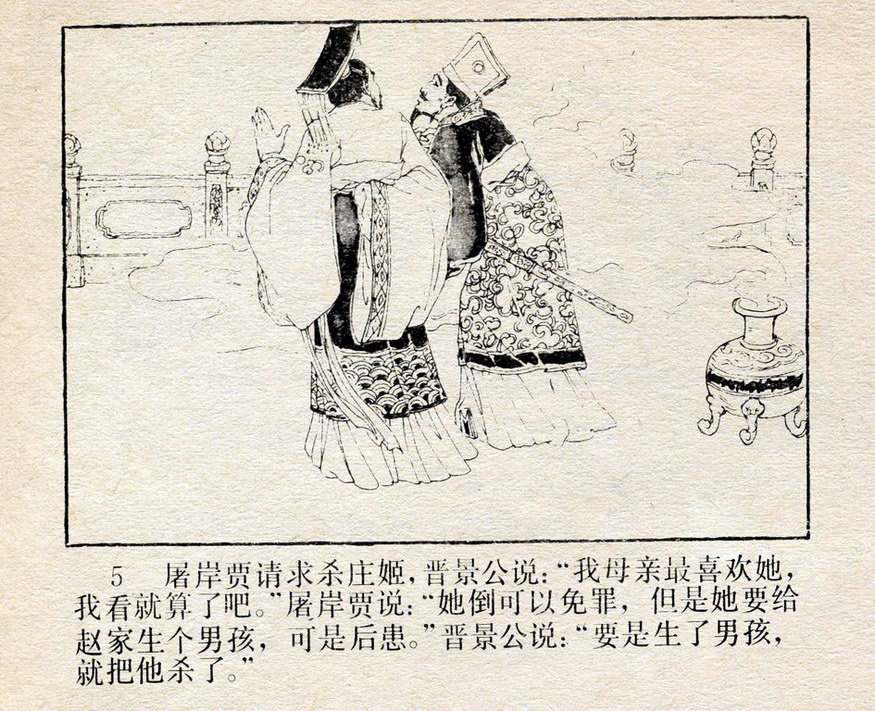 5 屠岸贾请求杀庄姬，晋景公说：“我母亲最喜欢她，
我看就算了吧。”屠岸贾说：“她倒可以免罪，但是她要给
赵家生个男孩，可是后患。”晋景公说：“要是生了男孩，
就把他杀了。”